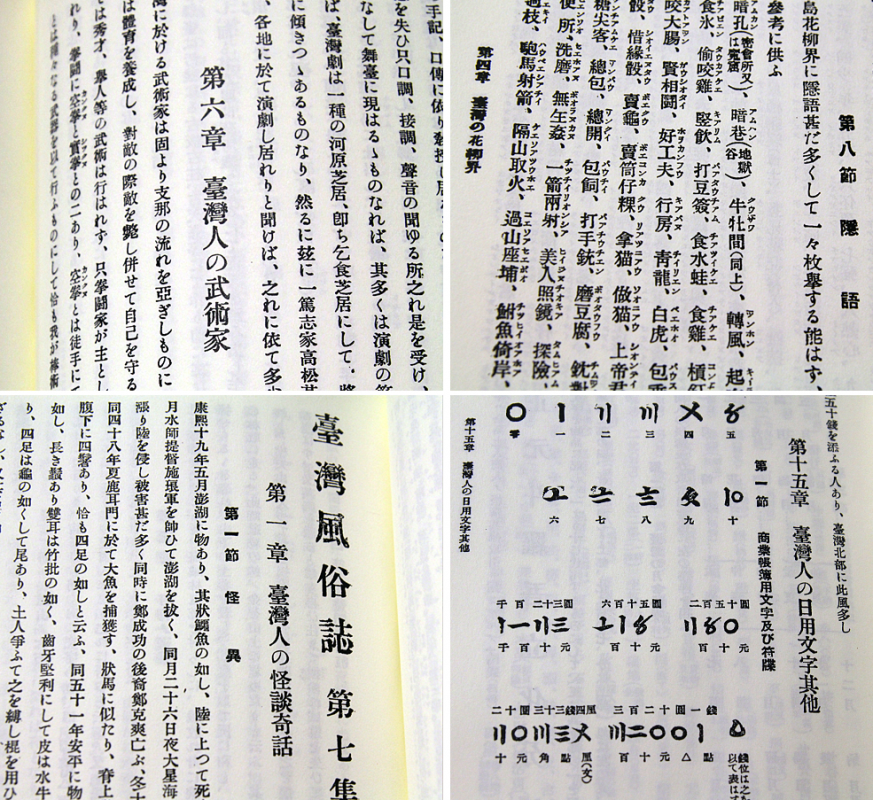 手記、口傳に依り
を失ひ只口調、接調、聲音の聞ゆる所之れ是を受け、
なして舞臺に現はるゝものなれば、其多くは演劇の
ば、臺灣劇は一種の河原芝居、卽ち乞食芝居にして、
に傾きつゝあるものなり、然るに玆に一篤志家高松
、各地に於て演劇し居れりと聞けば、之れに依て多
第六章 臺灣人の武術家
灣に於ける武術家は固より支那の流れを亞ぎしものに
は體育を養成し、對敵の際敵を斃し併せて自己を守る
は秀才、擧人等の武術は行はれず、只拳鬪家が主とし
れり、拳鬪に空拳と實拳との二あり、空拳とは徒手にて
とは種々なる武器を以て行ふものにして恰も我が棒術
第八節 隱語
島花柳界に隱語甚だ多くして一々枚擧する能はず、
參考に供ふ
暗孔(密會所又は窩窟)、暗巷(地獄谷)、牛牡間(同上)、轉風、起
食氷、偷咬雞、竪飮、打豆簽、食水蛙、食雞、槓
咬大腸、賢相鬪、好工夫、行房、靑龍、白虎、包
骰、惜緣骰、賣龜、賣筒仔粿、拿猫、做猫、上帝君
糖尖客、總包、總開、包飼、打手銃、磨豆腐、
便所、洗磨、無年姦、一箭兩射、美人照鏡、探險、
過枝、鞄馬射箭、隔山取火、過山座埔、鮒魚倚岸、
第四章 臺灣の花柳界
臺灣風俗誌 第七集
第一章 臺灣人の怪談奇話
第一節 怪異
康熙十九年五月澎湖に物あり、其狀鱷魚の如し、陸に上つて死
月水師提督施琅軍を帥ひて澎湖を拔く、同月二十六日夜大星海
漲り陸を侵し被害甚だ多く同時に鄭成功の後裔鄭克爽亡ぶ、冬
同四十八年夏鹿耳門に於て大魚を捕獲す、狀馬に似たり、脊上
腹下に四鬐あり、恰も四足の如しと云ふ、同五十一年安平に物
如し、長き鬚あり雙耳は竹批の如く、齒牙堅利にして皮は水牛
り、四足は龜の如くして尾あり、土人爭ふて之を縛し棍を用ひ
五十錢を添ふる人あり、臺灣北部に此風多し
第十五章 臺灣人の日用文字其他
第一節 商業帳簿用文字及び符牒
〇 〡 〢 〣 〤 〥
零 一 二 三 四 五
〦 〧 〨 〩 〡〇
六 七 八 九 十
千百二十三圓
〡一〢三
千百十元
六百十五圓
〦〡〥
百十元
二百五十圓
〢〥〇
百十元
二十圓三十三錢四厘
〢〇〣三〤
十元角點厘(文)
三百二十圓一錢
〣二〇〇〡
百十元△點
錢位は之を以て表は
第十五章 臺灣人の日用文字其他